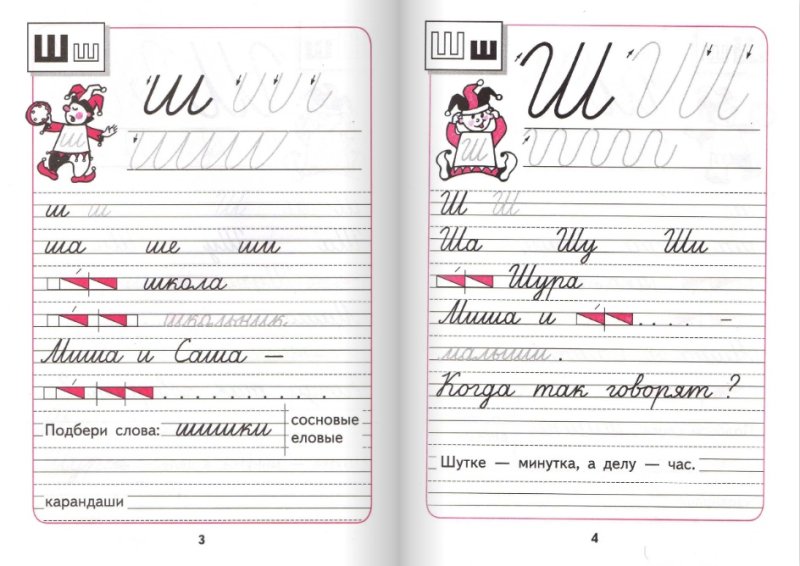 Ш ш
ш ш и и
шшш
ш
ш ш
ша ше ши
школа
школьник
Миша и Саша —
. . . . . . . . . . . .
Подбери слова: шишки сосновые
еловые
карандаши
3
Ш ш
Ш
Ш
Ш Ш
Ша Шу Ши
Шура
Миша и . . . . –
малыши .
Когда так говорят ?
Шутке — минутка, а делу — час.
4